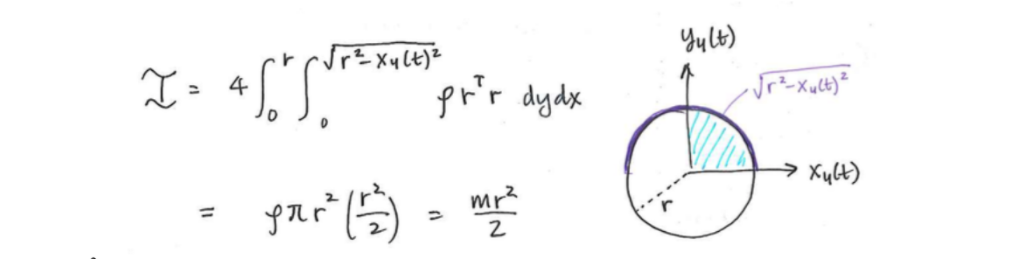 I = 4 ∫₀^r ∫₀^√(r² - x₄(t)²) ρ rᵀ r dy dx
= ρπr² (r²/2) = mr²/2
y₄(t)
√(r² - x₄(t)²)
x₄(t)
r